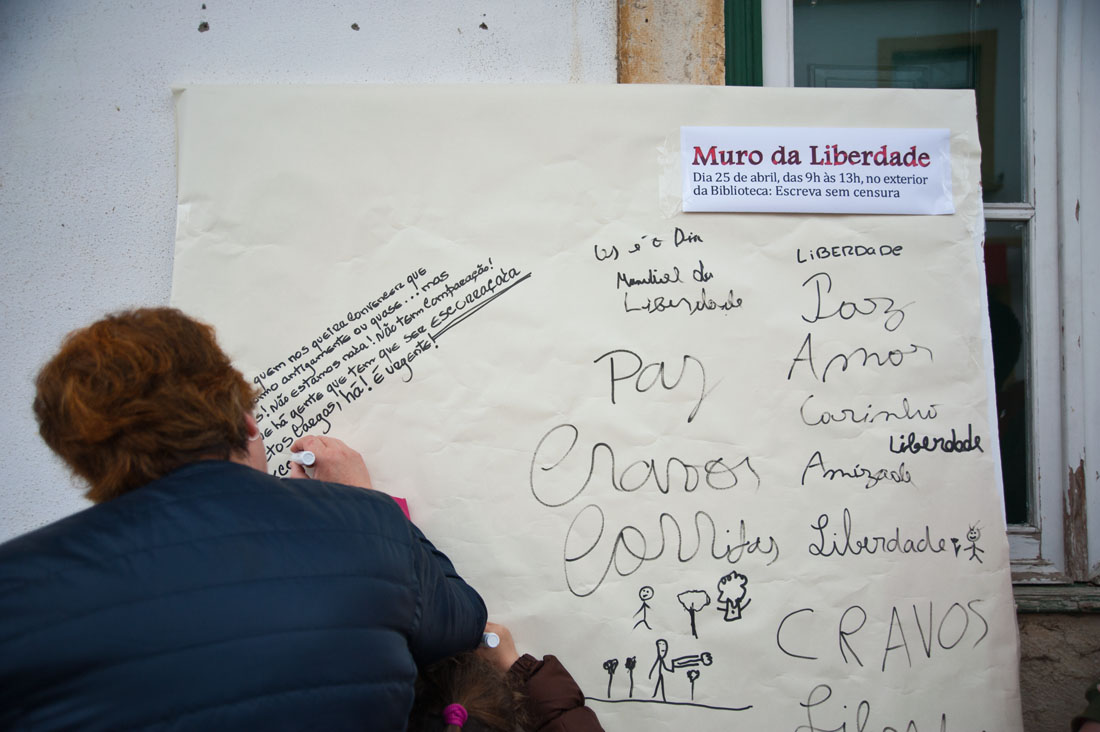 Muro da Liberdade
Dia 25 de abril, das 9h às 13h, no exterior
da Biblioteca: Escreva sem censura
quem nos queira convencer que
antigamente ou quase...mas
! Não estamos nada! Não tem comparação!
há gente que tem que ser escorraçada
largos, há! É urgente!
é o Dia
Mundial da
Liberdade
Paz
Cravos
Corridas
LIBERDADE
Paz
Amor
Carinho
Liberdade
Amizade
Liberdade
CRAVOS